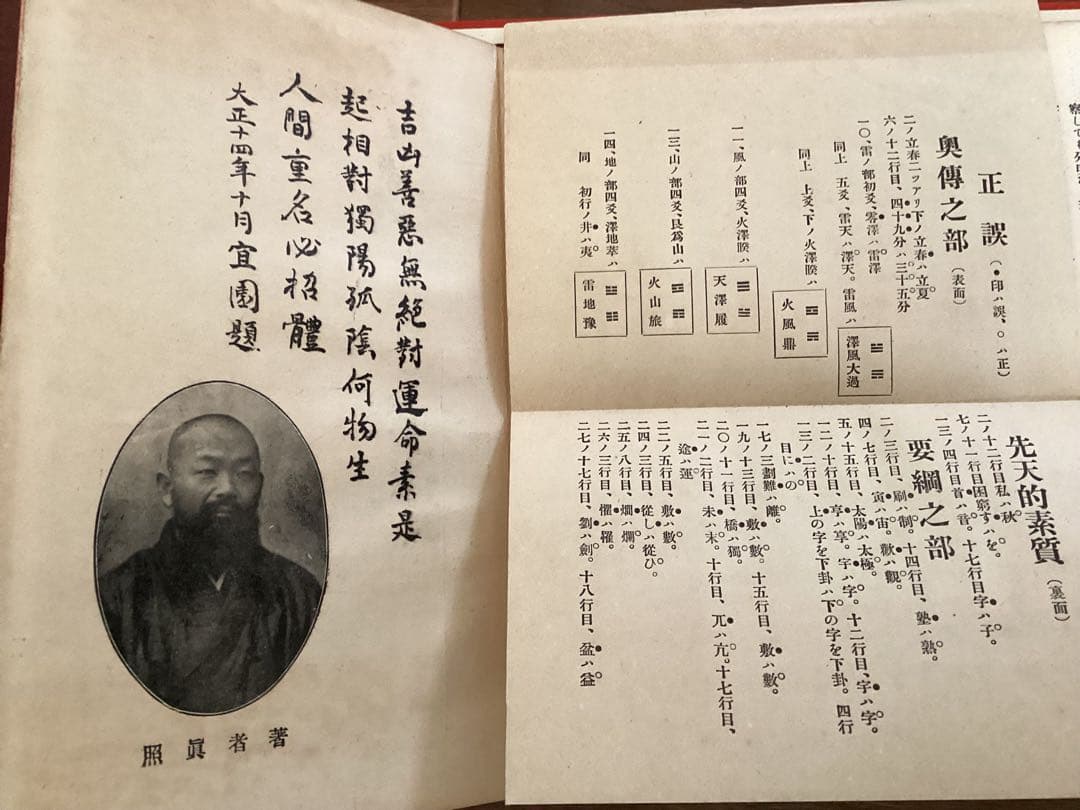 正誤(●印ハ誤、○ハ正)
奥傳之部(表面)
二ノ立春二ツアリ下ノ立春ハ立夏
六ノ十二行目、四十九分ハ三十五分
一〇、雷ノ部初爻、零澤ハ雷澤
同上 五爻、雷天ハ澤天。雷風ハ
澤風大過
同上 上爻、下ノ火澤睽ハ
火風鼎
一一、風ノ部四爻、火澤睽ハ
天澤履
一三、山ノ部四爻、艮爲山ハ
火山旅
一四、地ノ部四爻、澤地萃ハ
雷地豫
同 初行ノ井ハ夷
先天的素質(裏面)
二ノ十二行目私ハ秋。
七ノ十一行目困窮すハを。
一三ノ四行目首ハ音。十七行目字ハ子。
要綱之部
二ノ三行目、刷ハ制。十四行目、塾ハ熟。
四ノ七行目、寅ハ宙。歡ハ觀。
五ノ十五行目、太陽ハ太極。
一二ノ十行目、亨ハ享。字ハ字。十二行目、字ハ字。
一三ノ二行目、上の字を下卦ハ下の字を下卦。四行
目にハの
一七ノ三劃難ハ離。
一九ノ十三行目、敷ハ數。十五行目、敷ハ數。
二〇ノ十一行目、橋ハ獨。
二一ノ二行目、未ハ末。十行目、兀ハ亢。十七行目、
途ハ運
二二ノ五行目、敷ハ數。
二四ノ三行目、從しハ從ひ。
二五ノ八行目、爛ハ爛。
二六ノ三行目、懼ハ罹。
二七ノ十七行目、劉ハ劍。十八行目、盆ハ益
吉凶善惡無絶對運命素是
起相對獨陽孤陰何物生
人間重名必招體
大正十四年十月宜園題
著者眞照